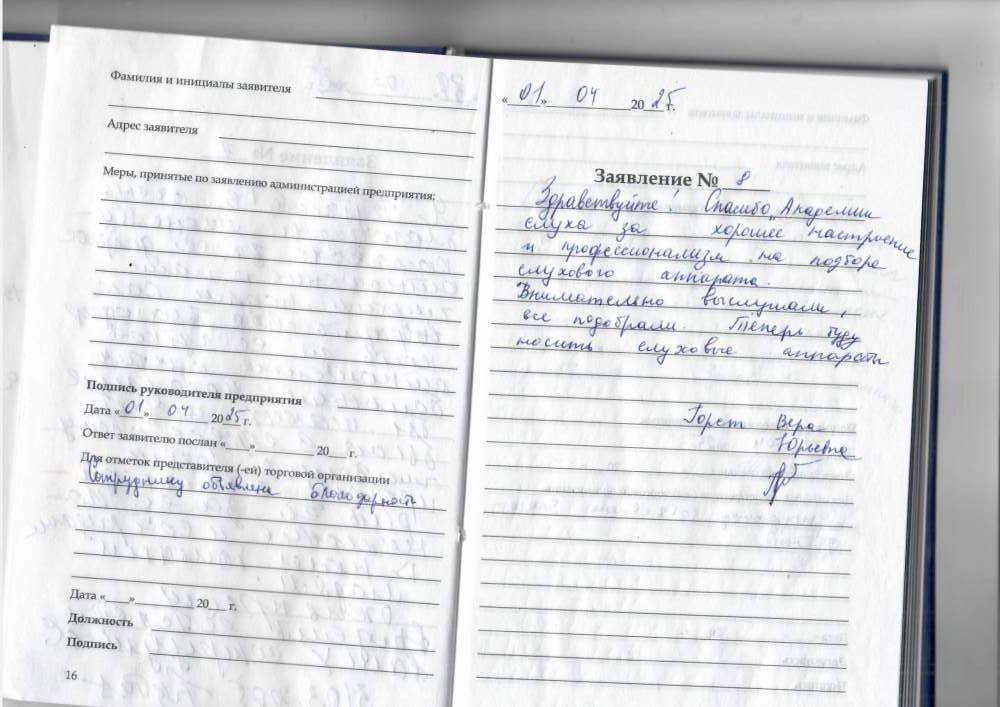 Фамилия и инициалы заявителя
Адрес заявителя
Меры, принятые по заявлению администрацией предприятия:
Подпись руководителя предприятия
Дата «01» 04 2025 г.
Ответ заявителю послан «____»__________ 20___ г.
Для отметок представителя (-ей) торговой организации
Сотруднику объявлена благодарность
Дата «____»__________ 20___ г.
Должность
Подпись
16
«01» 04 2025 г.
Заявление № 8
Здравствуйте! Спасибо „Академии
слуха за хорошее настроение
и профессионализм на подбора
слухового аппарата.
Внимательно выслушали,
все подобрали. Теперь буду
носить слуховые аппараты
Горст Вера
Юрьевна